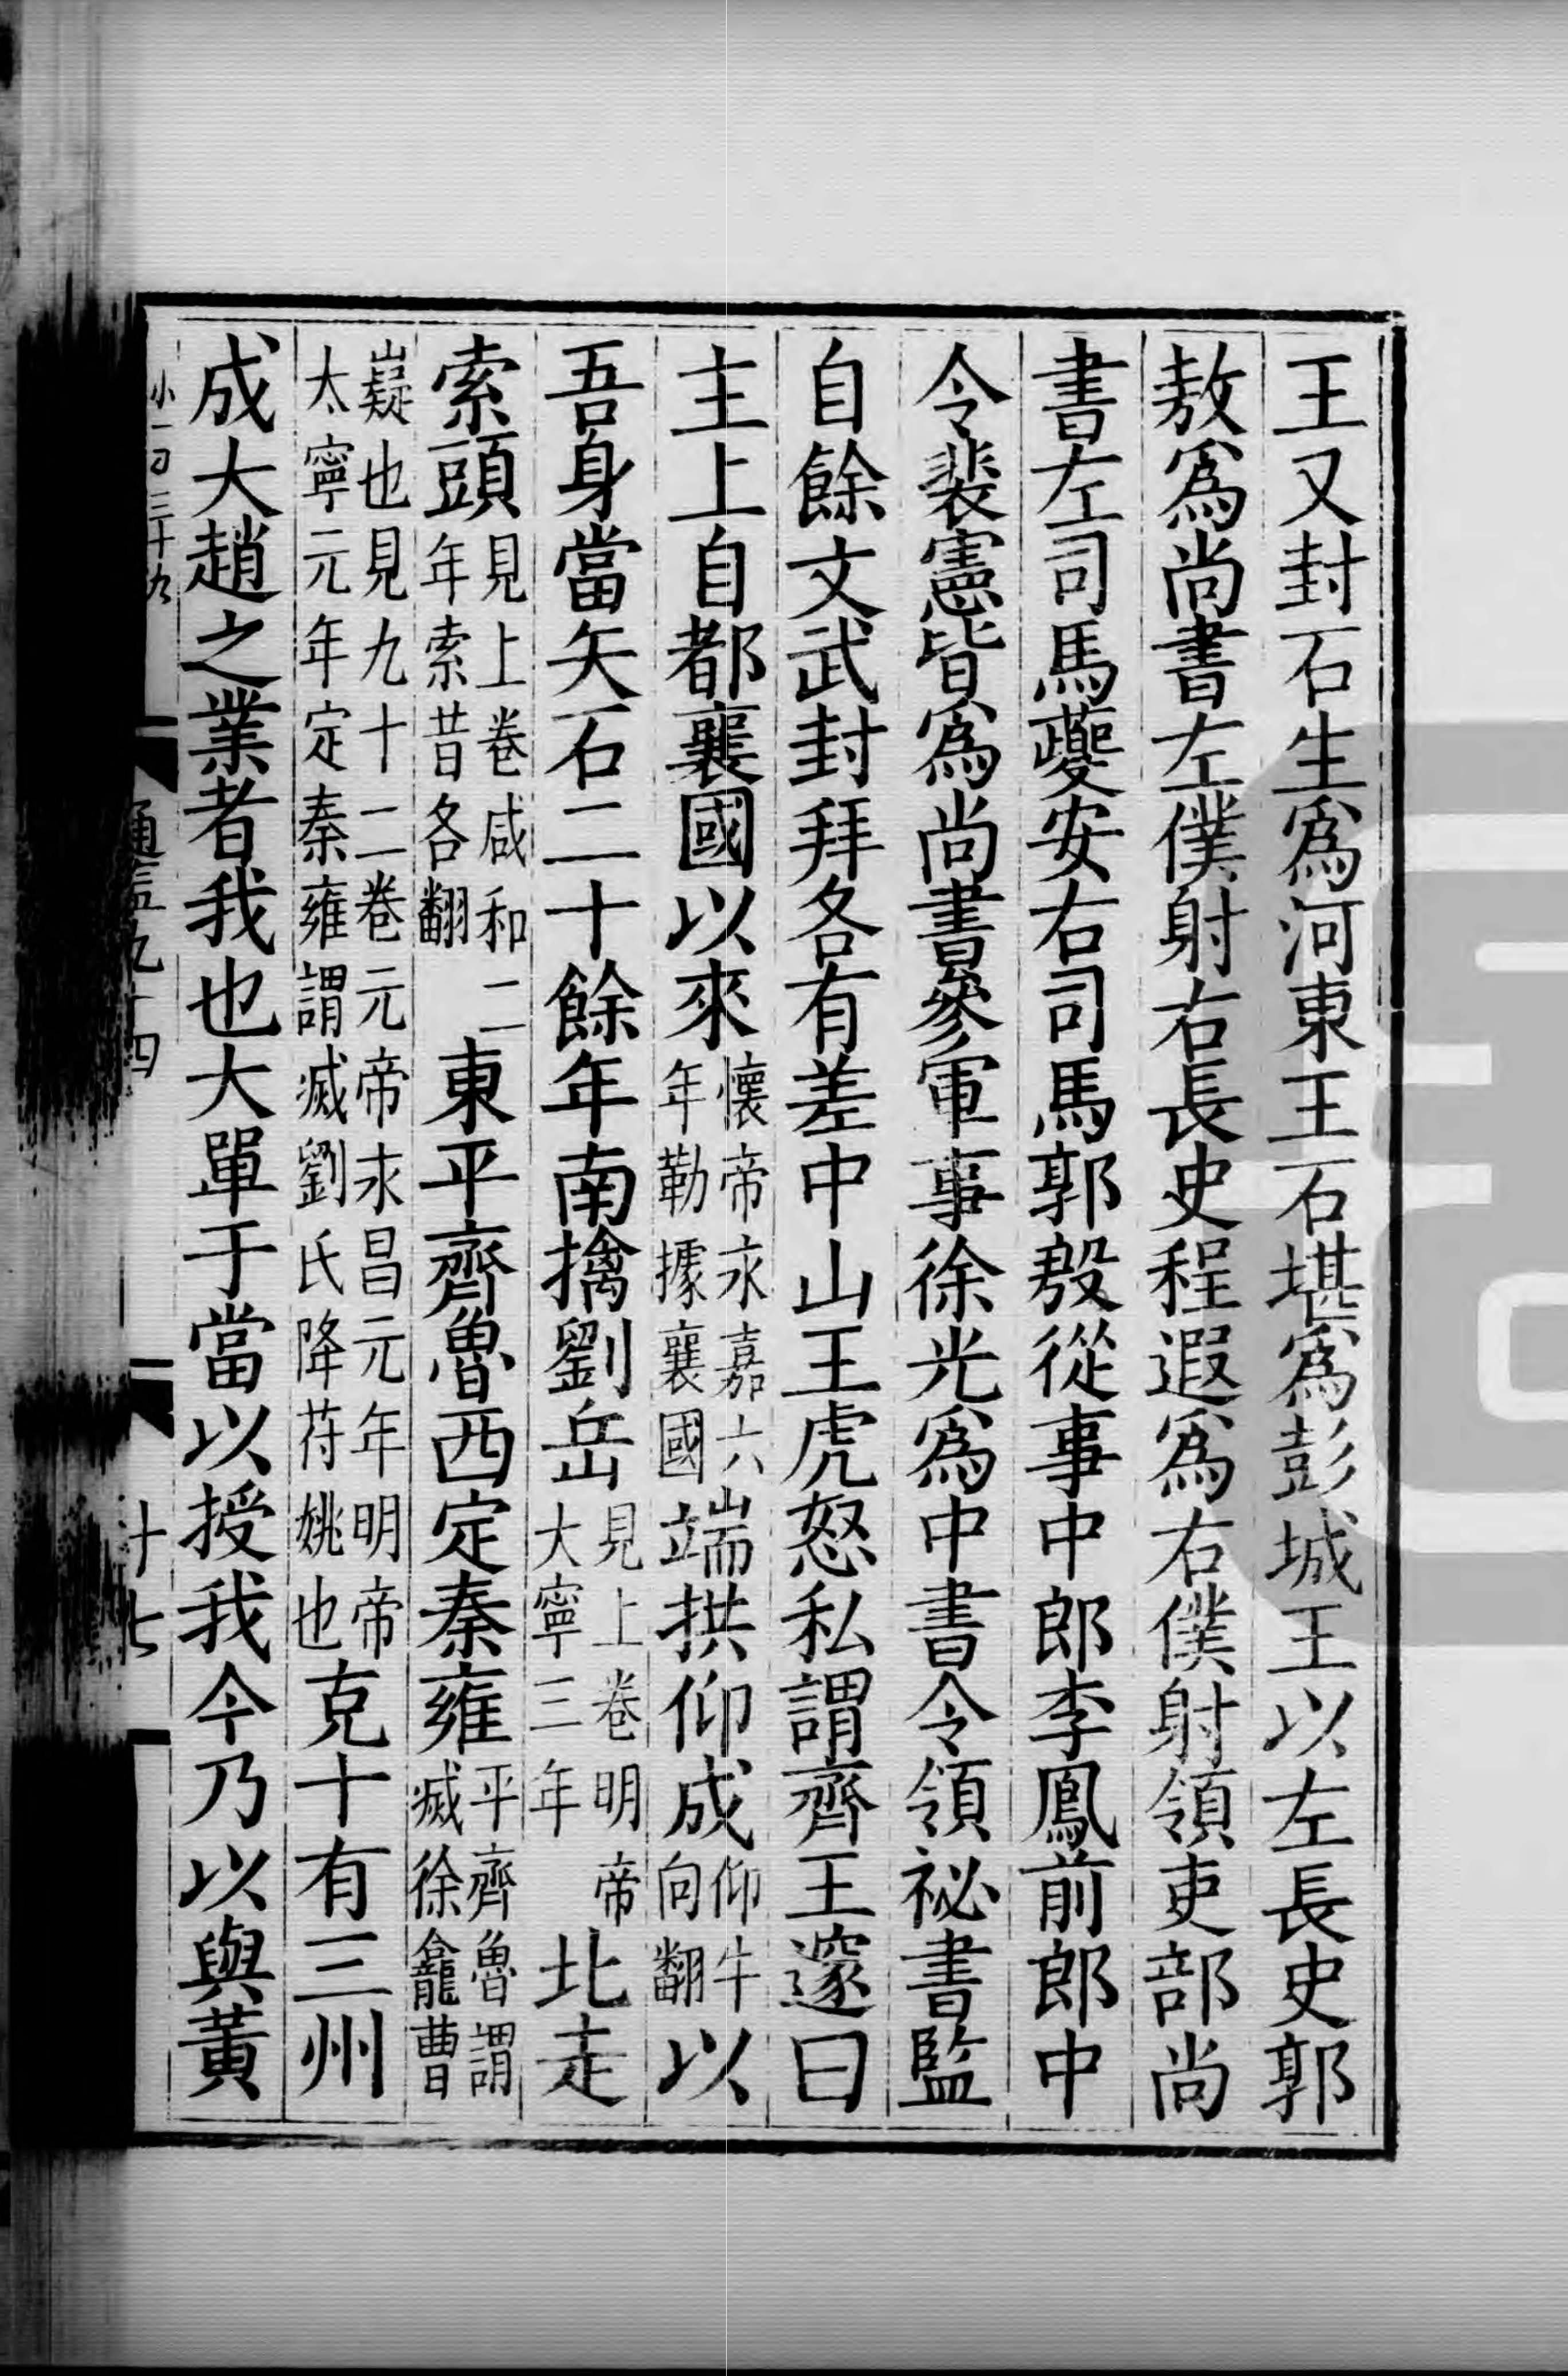 王又封石生爲河東王石堪爲彭城王以左長史郭
敖爲尚書左僕射右長史程遐爲右僕射領吏部尚
書左司馬夔安右司馬郭殷從事中郎李鳳前郎中
令裴憲皆爲尚書參軍事徐光爲中書令領祕書監
自餘文武封拜各有差中山王虎怒私謂齊王邃曰
主上自都襄國以來懷帝永嘉六年勒據襄國端拱仰成仰牛向翻以
吾身當矢石二十餘年南擒劉岳見上卷明帝大寧三年北走
索頭見上卷咸和二年索昔各翻東平齊魯西定秦雍平齊魯謂滅徐龕曹
嶷也見九十二卷元帝永昌元年明帝太寧元年定秦雍謂滅劉氏降苻姚也克十有三州
成大趙之業者我也大單于當以授我今乃以與黃
通鑑九十四
十七